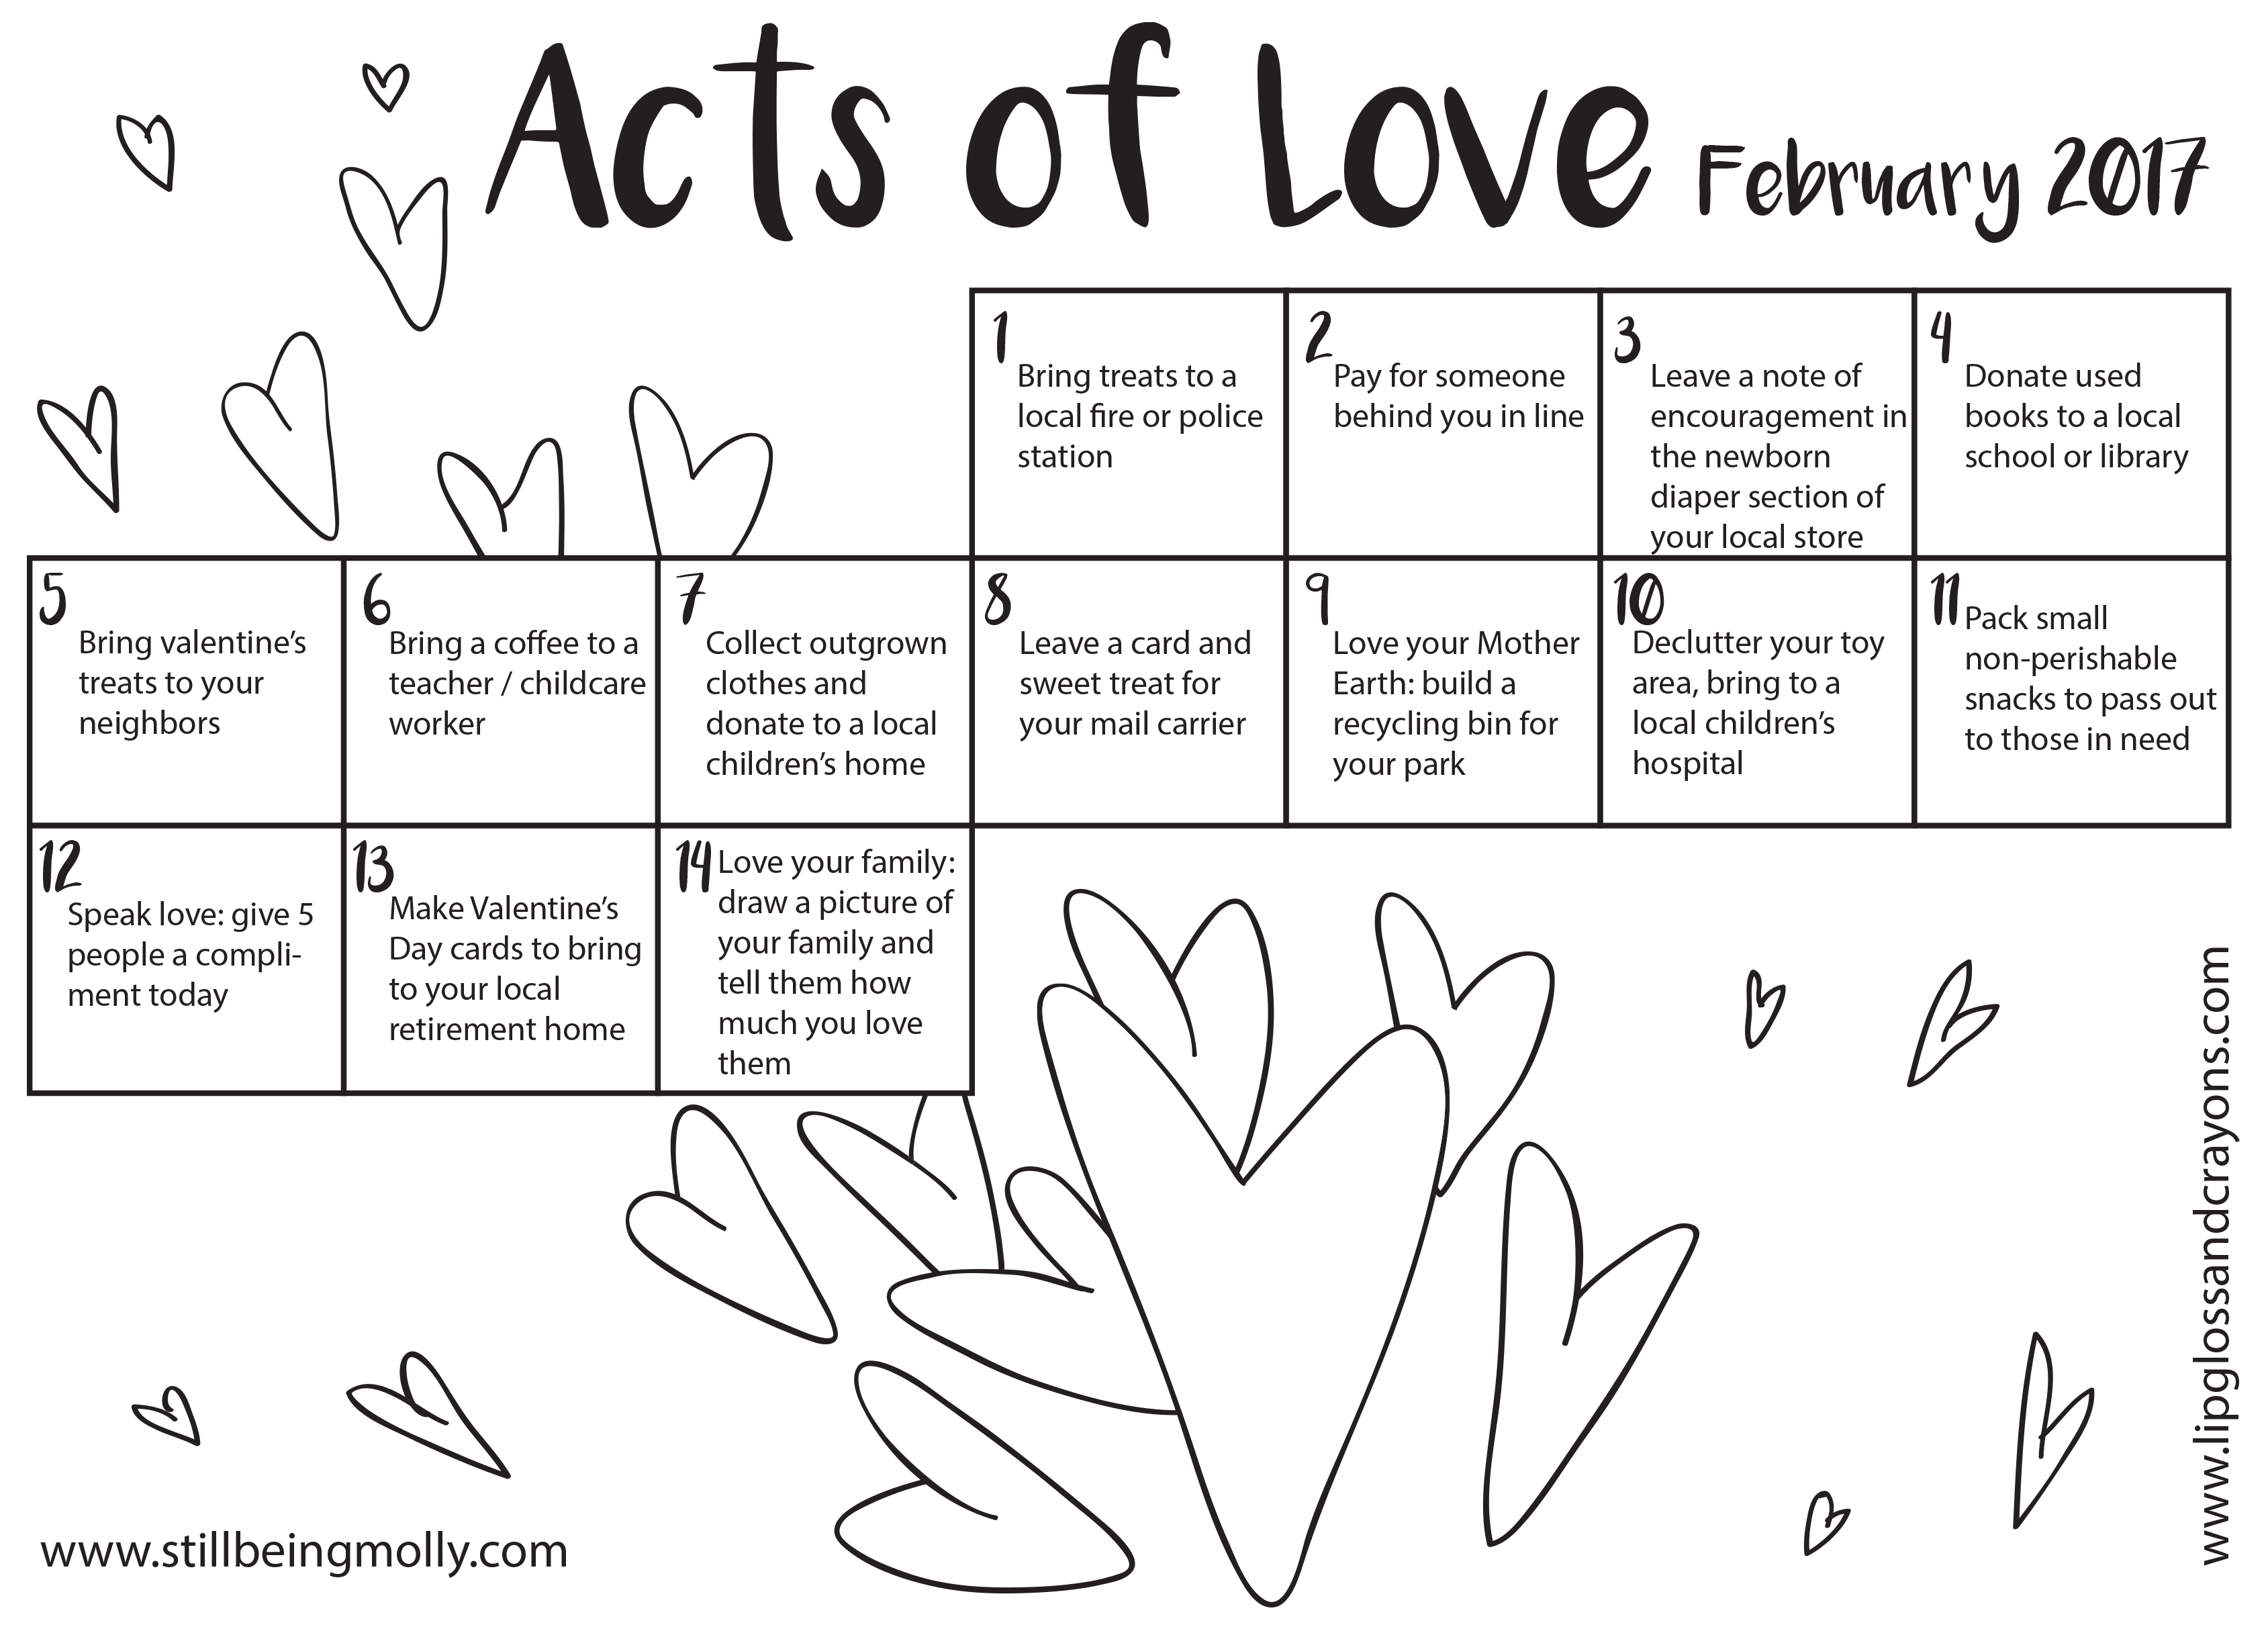 Acts of Love February 2017
1
Bring treats to a
local fire or police
station
2
Pay for someone
behind you in line
3
Leave a note of
encouragement in
the newborn
diaper section of
your local store
4
Donate used
books to a local
school or library
5
Bring valentine's
treats to your
neighbors
6
Bring a coffee to a
teacher / childcare
worker
7
Collect outgrown
clothes and
donate to a local
children's home
8
Leave a card and
sweet treat for
your mail carrier
9
Love your Mother
Earth: build a
recycling bin for
your park
10
Declutter your toy
area, bring to a
local children's
hospital
11
Pack small
non-perishable
snacks to pass out
to those in need
12
Speak love: give 5
people a compli-
ment today
13
Make Valentine's
Day cards to bring
to your local
retirement home
14
Love your family:
draw a picture of
your family and
tell them how
much you love
them
www.stillbeingmolly.com
www.lipglossandcrayons.com